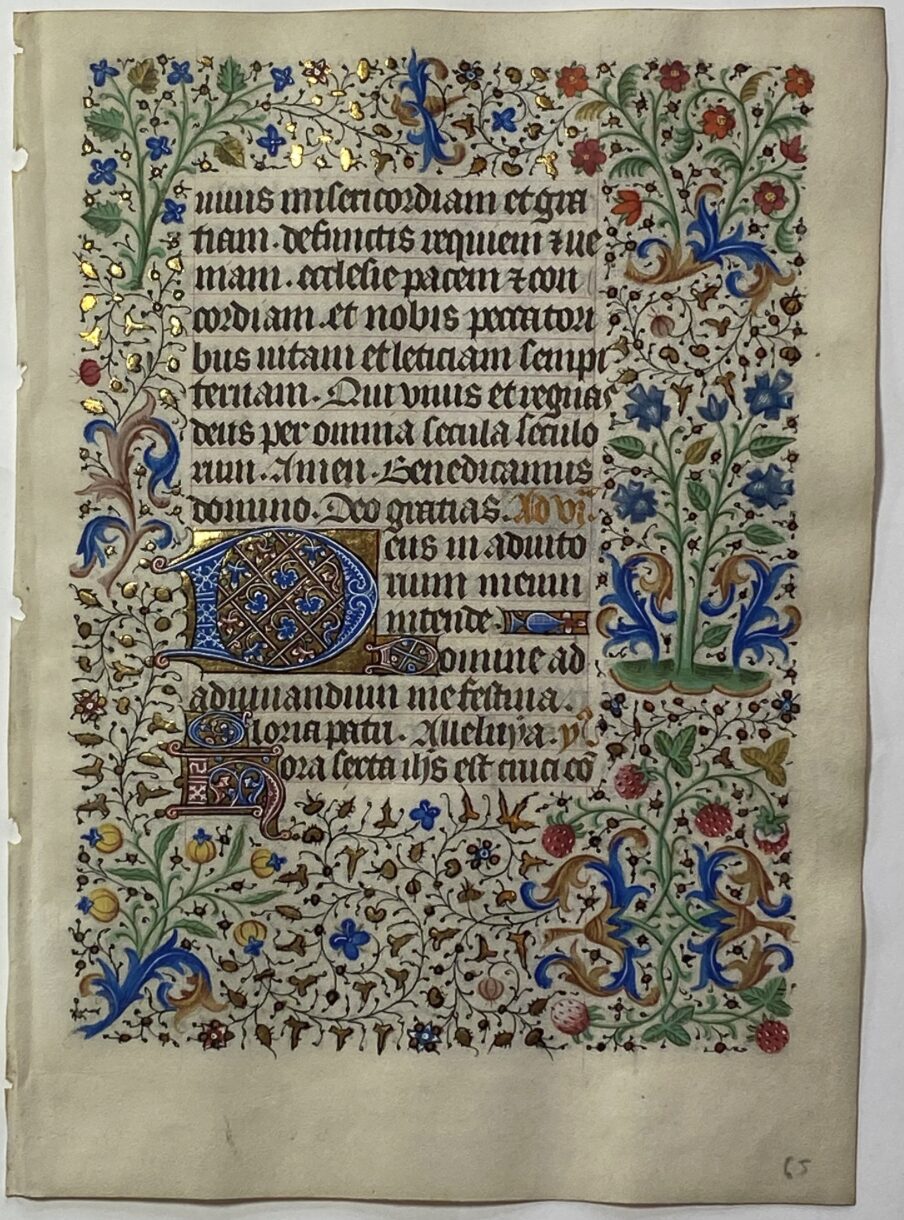 uiuis misericordiam et gra
tiam. defunctis requiem ⁊ ue
niam. ecclesie pacem ⁊ con
cordiam. et nobis peccatori
bus uitam et leticiam sempi
ternam. Qui viuis et regnas
deus per omnia secula seculo
rum. Amen. Benedicamus
domino. Deo gratias. Ad vi.
Deus in adiuto
rium meum
intende.
Domine ad
adiuuandum me festina.
Gloria patri. Alleluya. ỹ
Hora sexta ihs est cruci cō
65